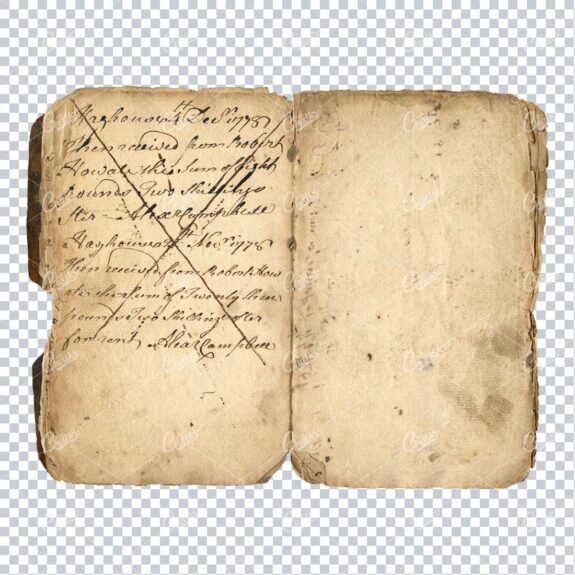 Hayhouse 4th Decr 1778
Then received from Robert
Howat the Sum of Eight
pounds Two Shillings
Ster - Alexr Campbell
Hayhouse 4th Novr 1778
Then received from Robert How
at the Sum of Twenty three
pounds Two Shillings ster
for rent Alexr Campbell